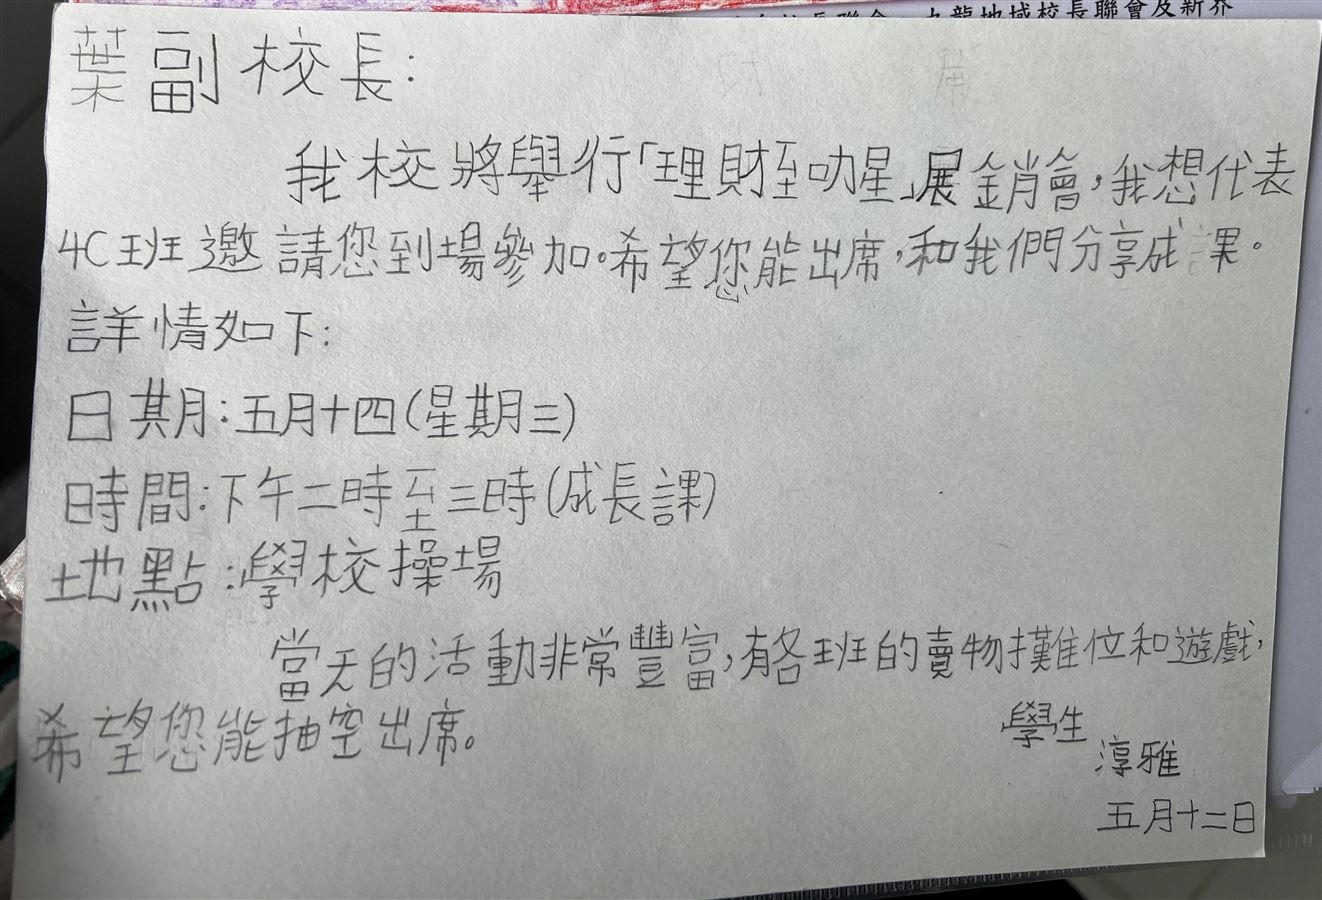 自校長聯會、九龍地域校長聯會及新界
葉副校長：
我校將舉行「理財至叻星」展銷會，我想代表
4C班邀請您到場參加。希望您能出席，和我們分享成果。
詳情如下：
日期：五月十四(星期三)
時間：下午二時至三時(成長課)
地點：學校操場
當天的活動非常豐富，有各班的賣物攤位和遊戲，
希望您能抽空出席。
學生
淳雅
五月十二日